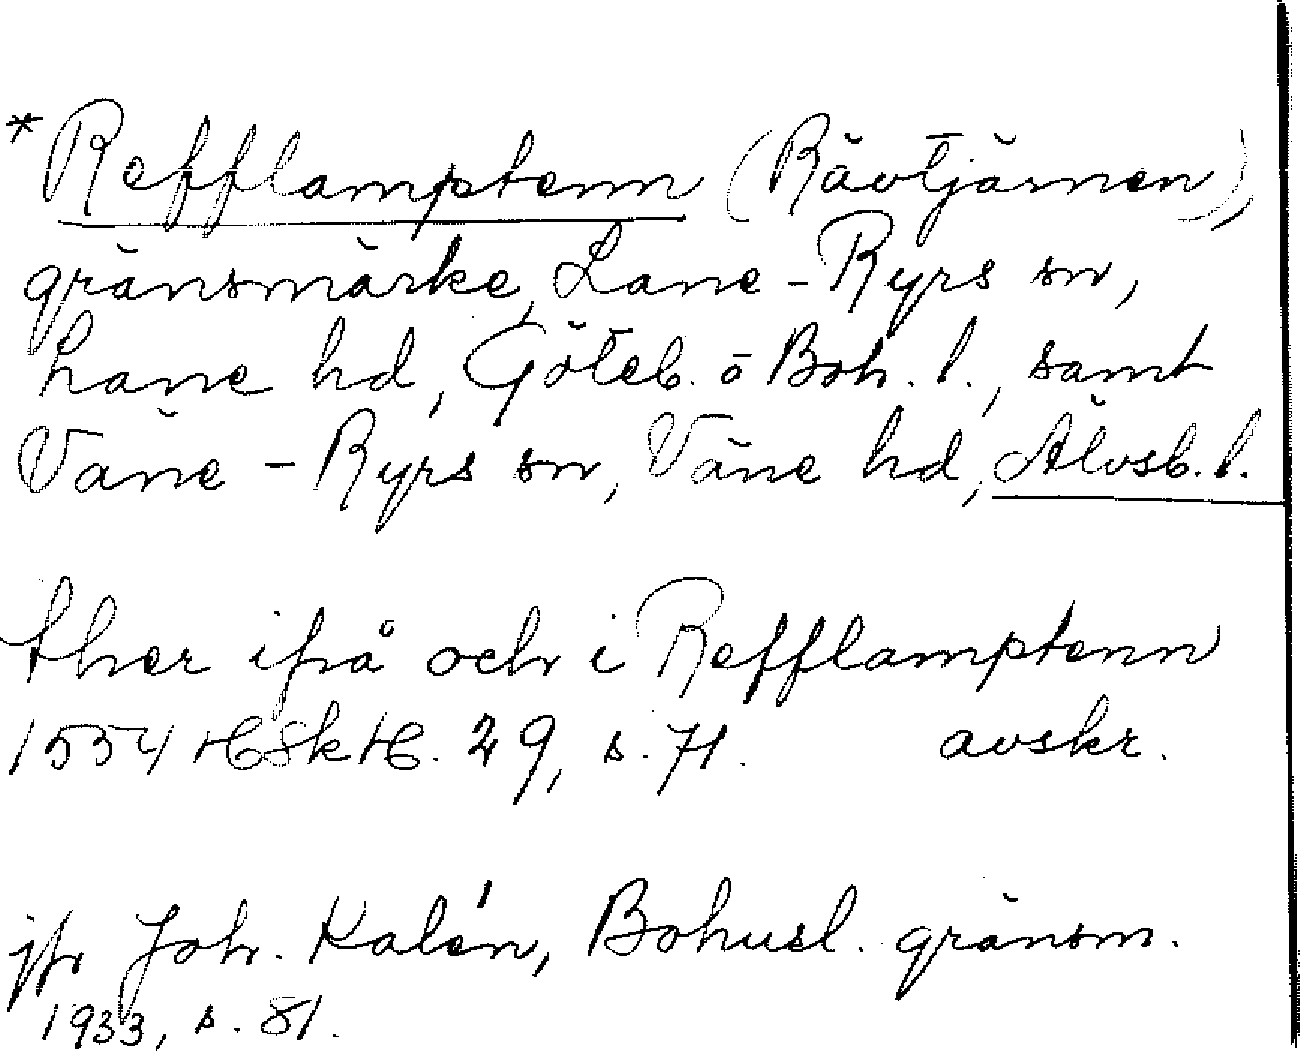 *Refflamptenn (Rävtjärnen),
gränsmärke, Lane-Ryrs sn,
Lane hd, Göteb. o Boh. l., samt
Väne-Ryrs sn, Väne hd, Älvsb. l.
ther ifrå och i Refflamptenn
1554 HSkH. 29, s. 71. avskr.
jfr Joh. Kalén, Bohusl. gränsm.
1933, s. 81.